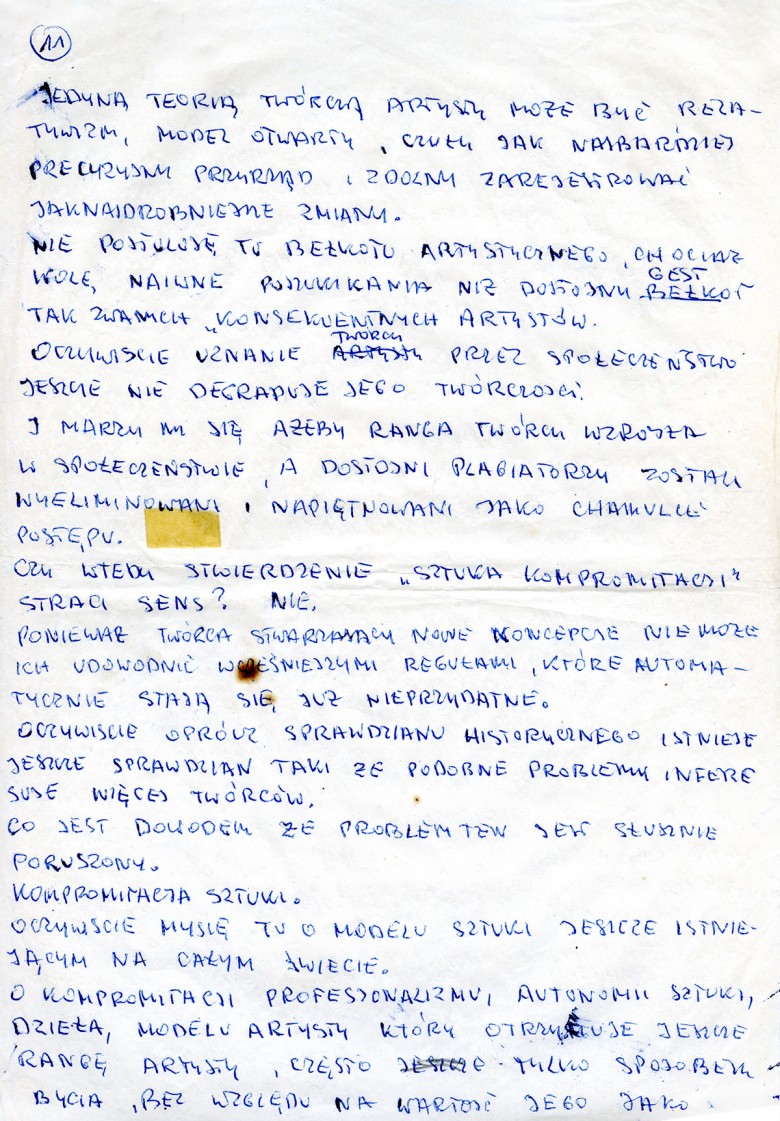 11
JEDYNĄ TEORIĄ TWÓRCZĄ ARTYSTY MOŻE BYĆ RELA-
TYWIZM, MODEL OTWARTY, CZUŁY JAK NAJBARDZIEJ
PRECYZYJNY PRZYRZĄD I ZDOLNY ZAREJESTROWAĆ
JAKNAJDROBNIEJSZE ZMIANY.
NIE POSTULUJĘ TU BEŁKOTU ARTYSTYCZNEGO, CHOCIAŻ
WOLĘ NAIWNE POSZUKIKANIA NIŻ DOSTOJNY BEŁKOT
GEST
TAK ZWANYCH „KONSEKWENTNYCH ARTYSTÓW.
OCZYWIŚCIE UZNANIE ARTYSTY PRZEZ SPOŁECZEŃSTWO
TWÓRCY
JESZCZE NIE DEGRADUJE JEGO TWÓRCZOŚCI.
I MARZY MI SIĘ AŻEBY RANGA TWÓRCY WZROSŁA
W SPOŁECZEŃSTWIE, A DOSTOJNI PLAGIATORZY ZOSTALI
WYELIMINOWANI I NAPIĘTNOWANI JAKO CHAMULCE
POSTĘPU.
CZY WTEDY STWIERDZENIE „SZTUKA KOMPROMITACJI"
STRACI SENS? NIE.
PONIEWAŻ TWÓRCA STWARZAJĄCY NOWE KONCEPCJE NIE MOŻE
ICH UDOWODNIĆ WCZEŚNIEJSZYMI REGUŁAMI, KTÓRE AUTOMA-
TYCZNIE STAJĄ SIĘ JUŻ NIEPRZYDATNE.
OCZYWIŚCIE OPRÓCZ SPRAWDZIANU HISTORYCZNEGO ISTNIEJE
JESZCZE SPRAWDZIAN TAKI ŻE PODOBNE PROBLEMY INTERE
SUJE WIĘCEJ TWÓRCÓW.
CO JEST DOWODEM ŻE PROBLEM TEN JEST SŁUSZNIE
PORUSZONY.
KOMPROMITACJA SZTUKI.
OCZYWIŚCIE MYŚLĘ TU O MODELU SZTUKI JESZCZE ISTNIE-
JĄCYM NA CAŁYM ŚWIECIE.
O KOMPROMITACJI PROFESJONALIZMU, AUTONOMII SZTUKI,
DZIEŁA, MODELU ARTYSTY KTÓRY OTRZYMUJE JESZCZE
RANGĘ ARTYSTY, CZĘSTO JESZCZE TYLKO SPOSOBEM
BYCIA, BEZ WZGLĘDU NA WARTOŚĆ JEGO JAKO